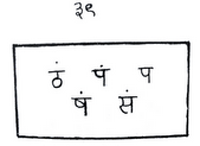 ३९
ठं पं प
षं सं